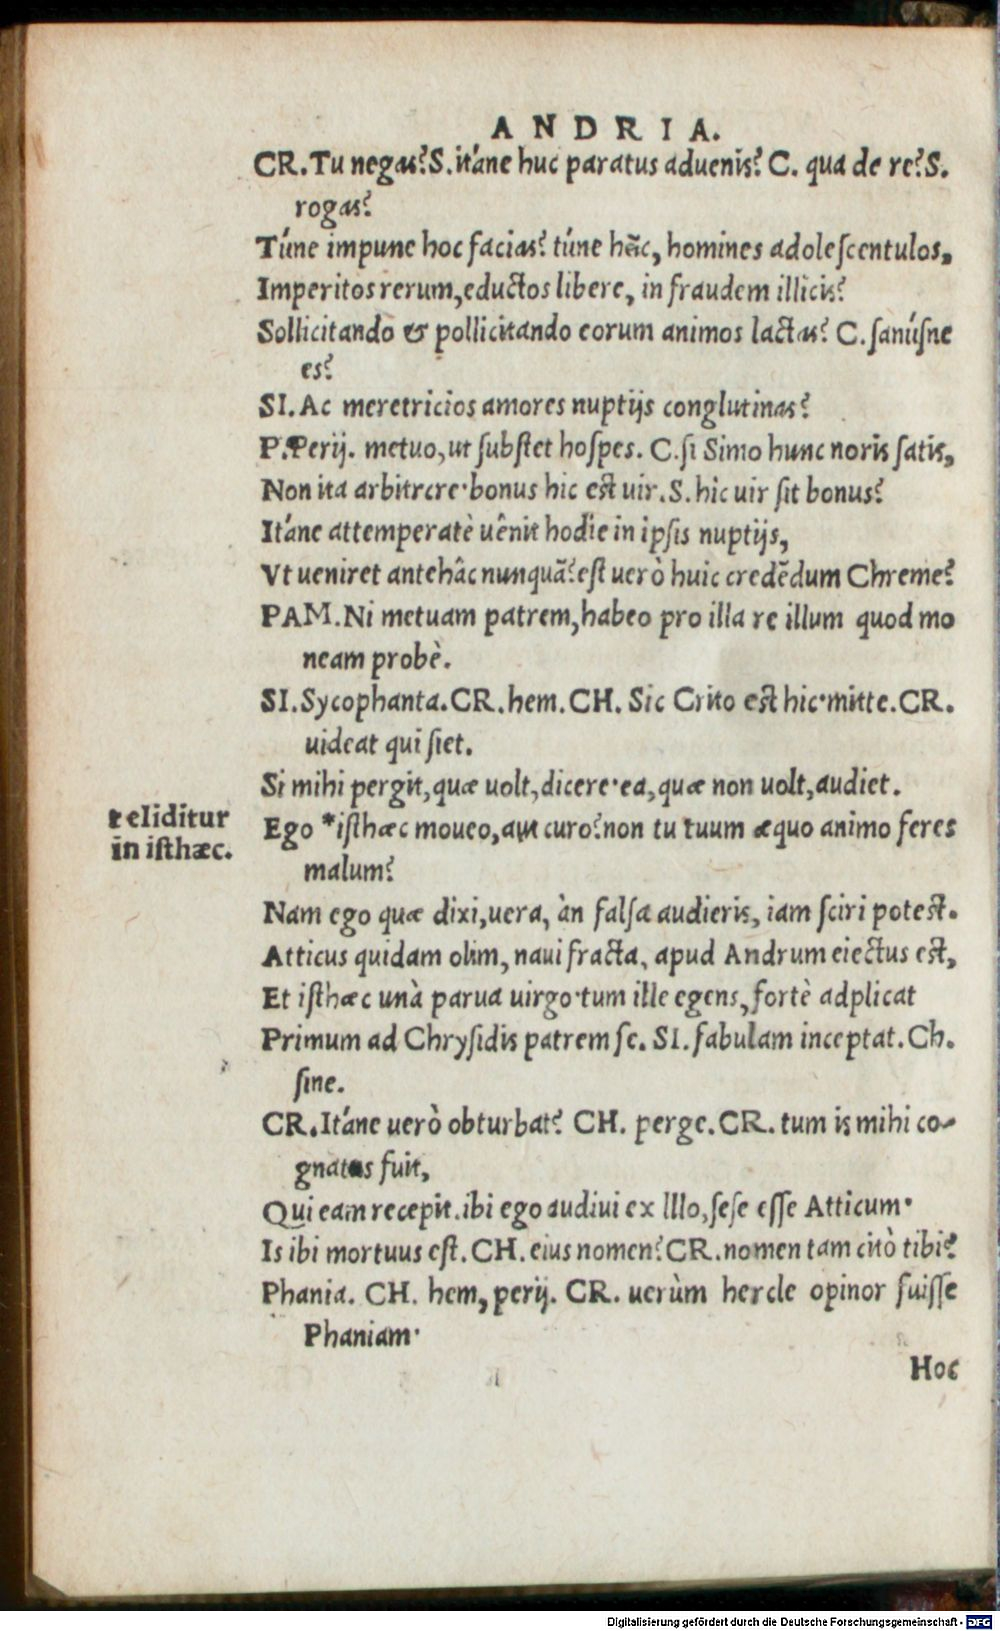 ANDRIA.
CR. Tu negas? S. itáne huc paratus aduenis? C. qua de re? S.
rogas?
Túne impune hoc facias? túne hĩc, homines adoleſcentulos,
Imperitos rerum, eductos libere, in fraudem illicis?
Sollicitando & pollicitando eorum animos lactas? C. ſanúſne
es?
SI. Ac meretricios amores nuptijs conglutinas?
P. Perij. metuo, ut ſubſtet hoſpes. C. ſi Simo hunc noris ſatis,
Non ita arbitrere· bonus hic est uir. S. hic uir ſit bonus?
Itáne attemperatè uênit hodie in ipſis nuptijs,
Vt ueniret antehâc nunquã? eſt uerò huic credẽdum Chreme?
PAM. Ni metuam patrem, habeo pro illa re illum quod mo
neam probè.
SI. Sycophanta. CR. hem. CH. Sic Crito est hic· mitte. CR.
uideat qui ſiet.
Si mihi pergit, quæ uolt, dicere· ea, quæ non uolt, audiet.
t eliditur
in iſthæc.
Ego *iſthæc moueo, aut curo? non tu tuum æquo animo feres
malum?
Nam ego quæ dixi, uera, àn falſa audieris, iam ſciri potest.
Atticus quidam olim, naui fracta, apud Andrum eiectus est,
Et iſthæc unà parua uirgo· tum ille egens, fortè adplicat
Primum ad Chryſidis patrem ſe. SI. fabulam inceptat. Ch.
ſine.
CR. Itáne uerò obturbat? CH. perge. CR. tum is mihi co-
gnatus fuit,
Qui eam recepit. ibi ego audiui ex Illo, ſeſe eſſe Atticum·
Is ibi mortuus eſt. CH. eius nomen? CR. nomen tam citò tibi?
Phania. CH. hem, perij. CR. uerùm hercle opinor fuiſſe
Phaniam·
Hoc
Digitalisierung gefördert durch die Deutsche Forschungsgemeinschaft - DFG